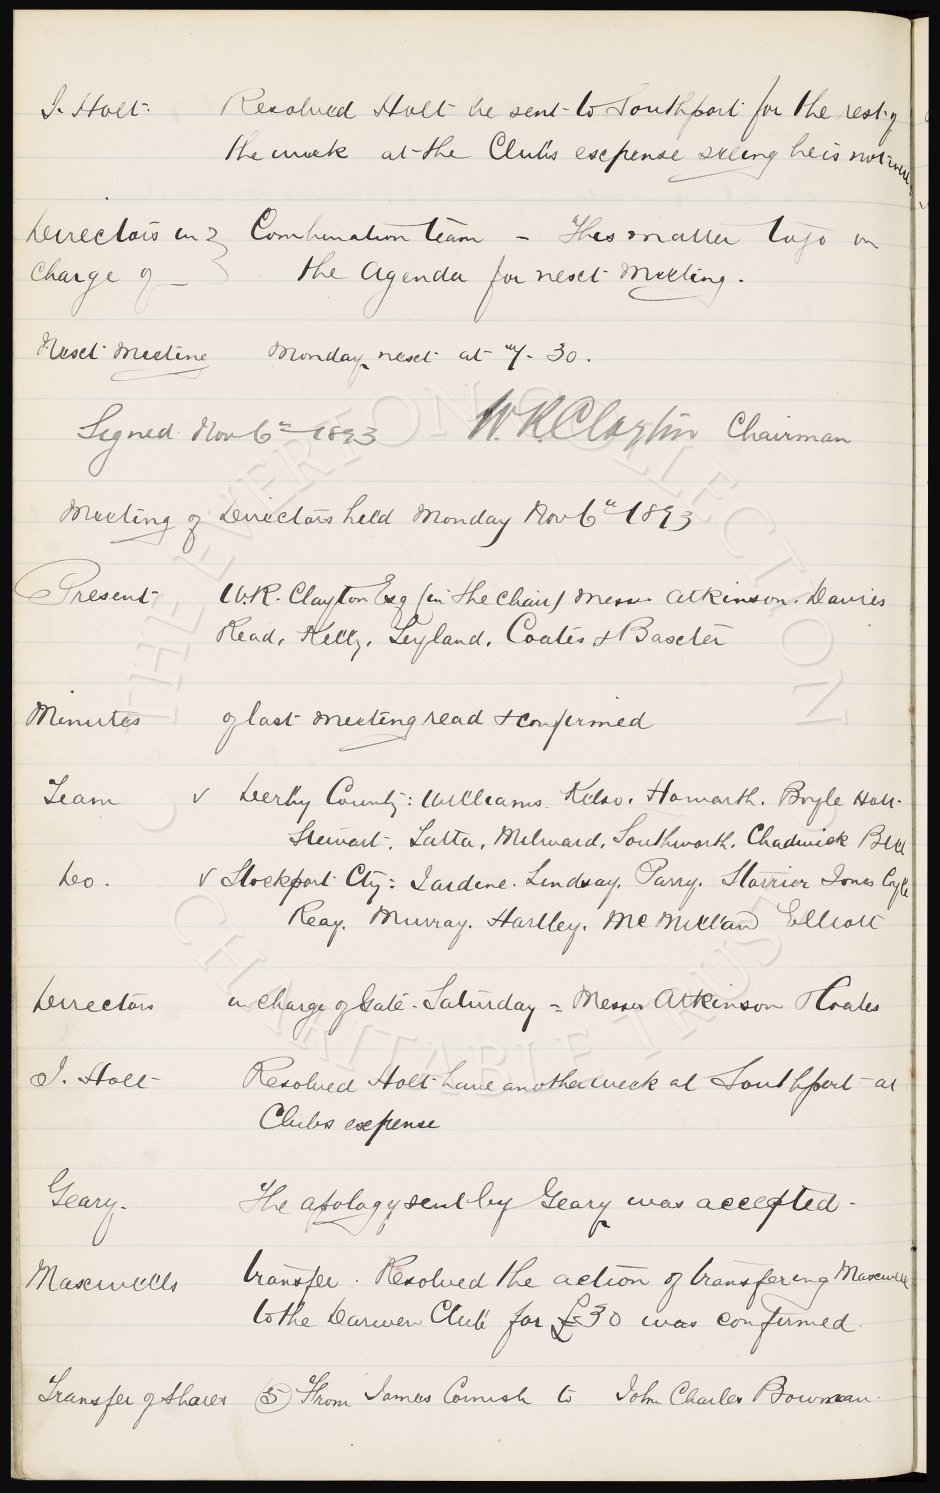 J. Holt. Resolved Holt be sent to Southport for the rest of
the week at the Club's expense seeing he is not well.
Directors in } Combination team - This matter to go on
charge of _ } the Agenda for next Meeting.
Next Meeting Monday next at 7-30.
Signed Nov 6th 1893 W.R. Clayton Chairman
Meeting of Directors held Monday Nov 6th 1893
Present W.R. Clayton Esq (in the Chair) Messrs Atkinson. Davies
Read, Kelly, Leyland, Coates & Baxter
Minutes of last meeting read & confirmed
Team v Derby County: Williams. Kelso. Howarth. Boyle Holt.
Stewart. Latta, Milward, Southworth. Chadwick Bell
Do. v Stockport Cty: Jardine. Lindsay. Parry. Storrier Jones Coyle
Reay. Murray. Hartley. McMillan Elliott
Directors in charge of Gate Saturday - Messrs Atkinson & Coates
J. Holt Resolved Holt have another week at Southport at
Clubs expense
Geary. The apology sent by Geary was accepted.
Maxwells transfer. Resolved the action of transfering Maxwell
to the Darwen Club for £30 was confirmed.
Transfer of Shares (5) From James Cornish to John Charles Bowman.
THE EVERTON COLLECTION
CHARITABLE TRUST